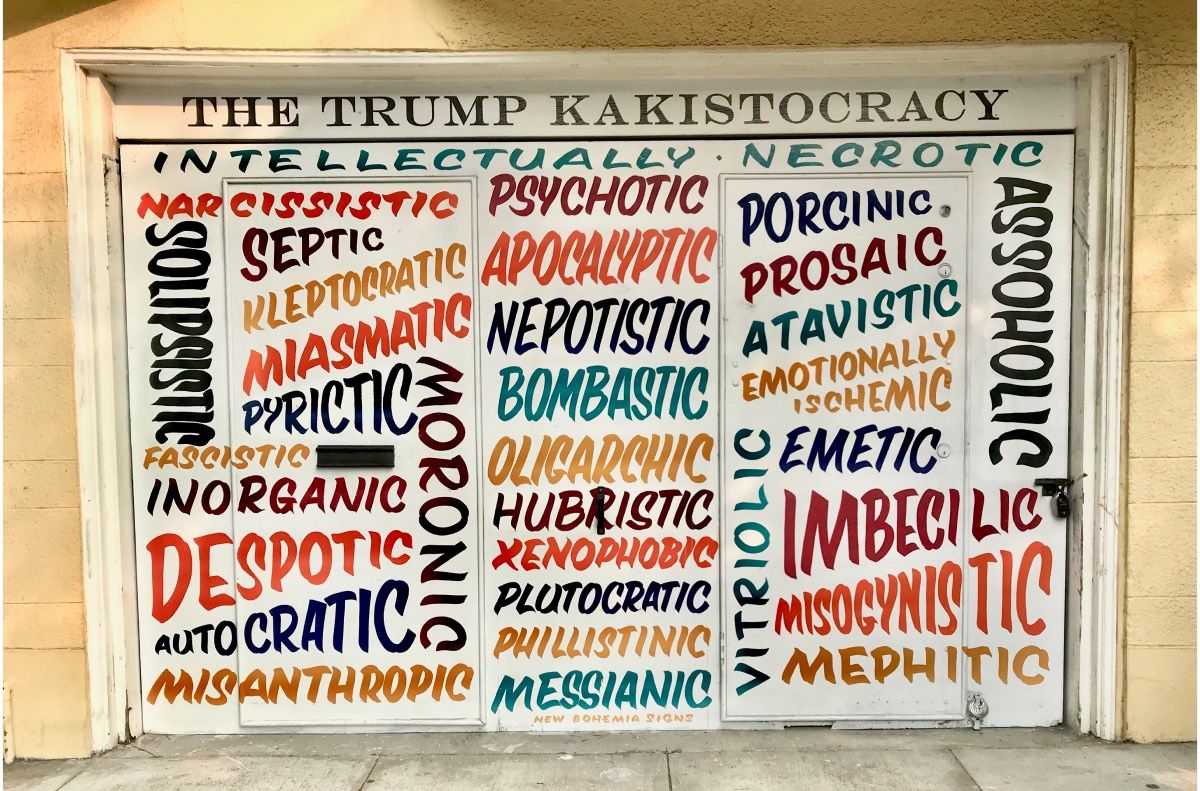 THE TRUMP KAKISTOCRACY
INTELLECTUALLY · NECROTIC
NARCISSISTIC
SOLIPSISTIC
SEPTIC
KLEPTOCRATIC
MIASMATIC
PYRICTIC
MORONIC
FASCISTIC
INORGANIC
DESPOTIC
AUTOCRATIC
MISANTHROPIC
PSYCHOTIC
APOCALYPTIC
NEPOTISTIC
BOMBASTIC
OLIGARCHIC
HUBRISTIC
XENOPHOBIC
PLUTOCRATIC
PHILLISTINIC
MESSIANIC
NEW BOHEMIA SIGNS
PORCINIC
PROSAIC
ATAVISTIC
EMOTIONALLY
ISCHEMIC
EMETIC
VITRIOLIC
IMBECILIC
MISOGYNISTIC
MEPHITIC
ASSOHOLIC